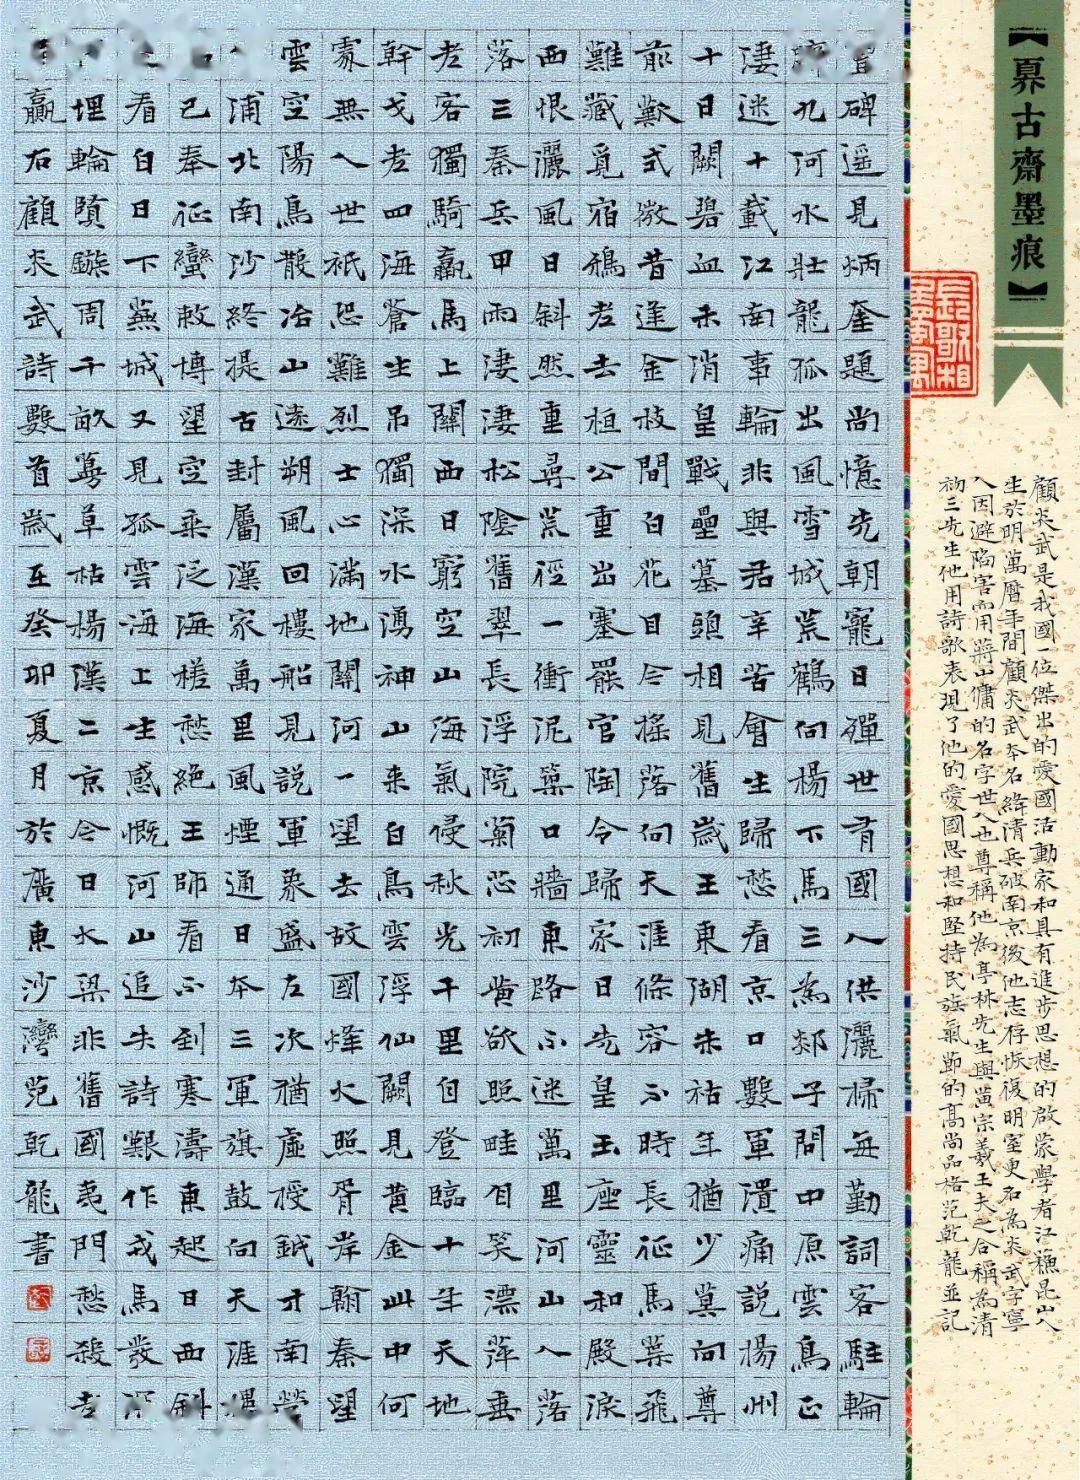 古齋墨痕
顧炎武是我國一位傑出的愛國活動家和具有進步思想的啟蒙學者江蘇昆山人
生於明萬曆年間顧炎武本名絳清兵破南京後他志存恢復明室更名為炎武字寧
人因避陷害而用蔣山傭的名字世人也尊稱他為亭林先生與黃宗羲王夫之合稱為清
初三先生他用詩歌表現了他的愛國思想和堅持民族氣節的高尚品格范乾龍並記
碑遥見炳奎題尚憶先朝寵日殫世有國人供灑掃每勤詞客駐輪
九河水壯龍孤出風雪城荒鶴向楊下馬三為郯子問中原雲鳥正
凄迷十載江南事輪非與君辛苦會生歸愁看京口數軍潰痛說揚州
十日闕碧血未消皇戰壘墓頭相見舊歲王東湖朱祜年猶少莫向尊
前歎式微昔逢金枝間白花目今搖落向天涯條容不時長征馬葉飛
難藏覓宿鴉老去桓公重出塞罷官陶令歸家日先皇玉座靈和殿淚
西恨灑風日斜然重尋荒徑一衝泥藥口牆東路不迷萬里河山人落
落三秦兵甲雨淒淒松陰舊翠長浮院菊蕊初黄欲照畦自笑漂萍垂
老客獨騎羸馬上關西日窮空山海氣侵秋光千里自登臨十年天地
幹戈老四海蒼生吊獨深水湧神山来白鳥雲浮仙闕見黄金此中何
處無人世祇恐難烈士心滿地關河一望去故國烽火照胥岸翰秦望
雲空陽鳥散冶山遠朔風回樓船見說軍衆盛左次猶虛授鉞才南營
浦北南沙終提古封屬漢家萬里風煙通日本三軍旗鼓向天涯
已奉征蠻敕博望空乘泛海槎愁絕王師看不到寒濤東起日西斜
看白日下蕪城又見孤雲海上生感慨河山追失詩艱作戎馬發深
埋輪鏃周千畝蔓草枯楊漢二京今日大梁非舊國夷門愁殺老
嬴右顧炎武詩數首歲在癸卯夏月於廣東沙灣范乾龍書